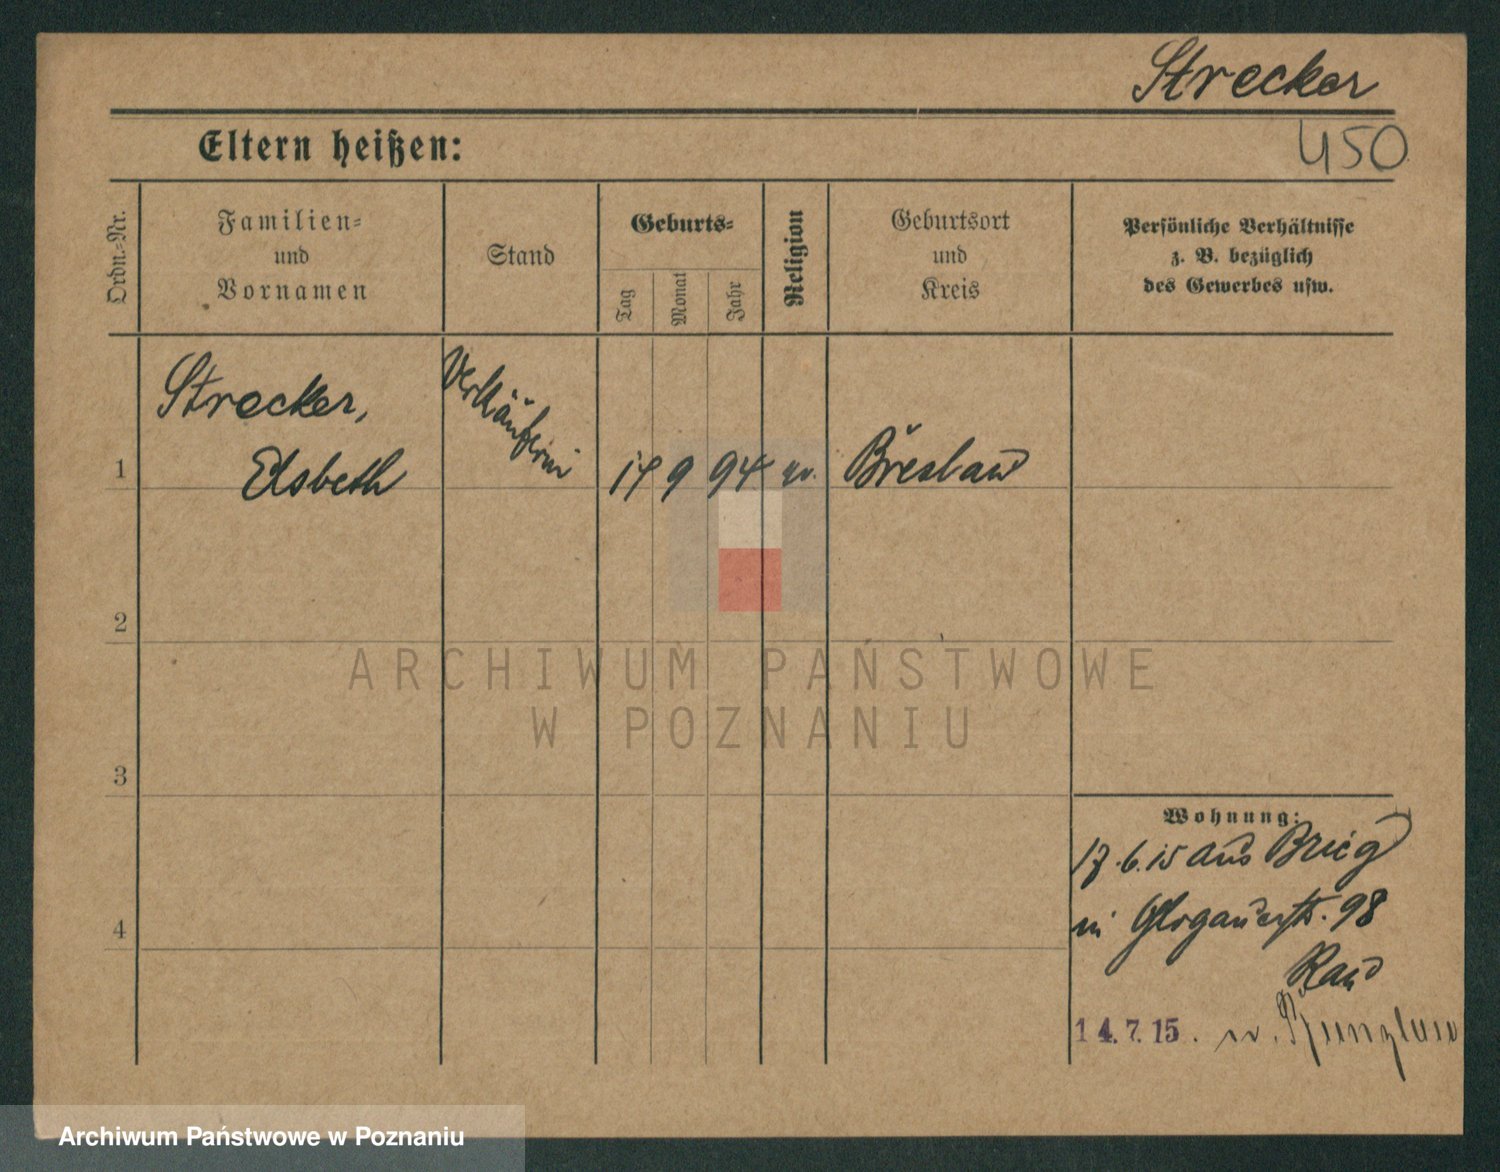 Strecker
Eltern heißen:
450
Ordn.-Nr.
Familien-
und
Vornamen
Stand
Geburts-
Tag
Monat
Jahr
Religion
Geburtsort
und
Kreis
Persönliche Verhältnisse
z. B. bezüglich
des Gewerbes usw.
1
Strecker,
Elsbeth
Verkäuferin
17 9 94 ev. Breslau
2
3
4
ARCHIWUM PAŃSTWOWE
W POZNANIU
Wohnung:
17.6.15 aus Brieg
in Glogauerstr. 98
Rau
14.7.15. n.
Archiwum Państwowe w Poznaniu